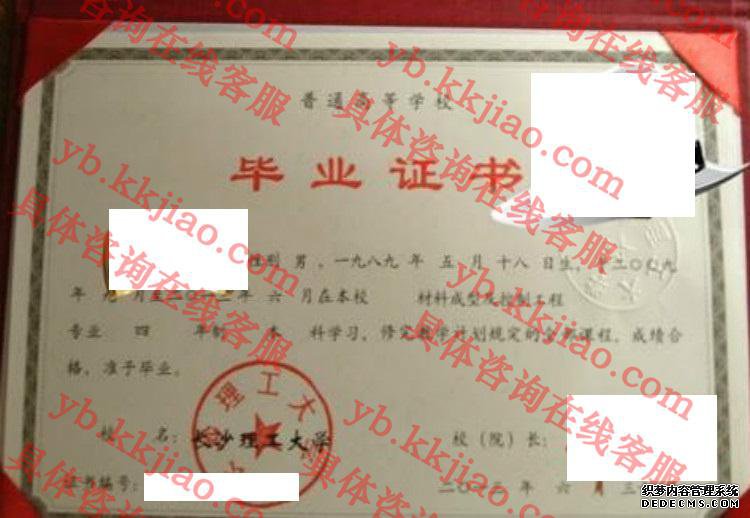 普通高等学校
毕业证书
性别 男 ，一九八九 年 五 月 十八 日生，于二〇〇九
年 九 月至二〇一三年 六 月在本校 材料成型及控制工程
专业 四 年制 本 科学习，修完教学计划规定的全部课程，成绩合
格，准予毕业。
校 名： 长沙理工大学 校（院）长：
证书编号： 二〇一三 年 六 月 三
理工大
yb.kkjiao.com
具体咨询在线客服
yb.kkjiao.com
具体咨询在线客服
yb.kkjiao.com
具体咨询在线客服
yb.kkjiao.com
具体咨询在线客服
yb.kkjiao.com
具体咨询在线客服
织梦内容管理系统
DEDECMS.COM